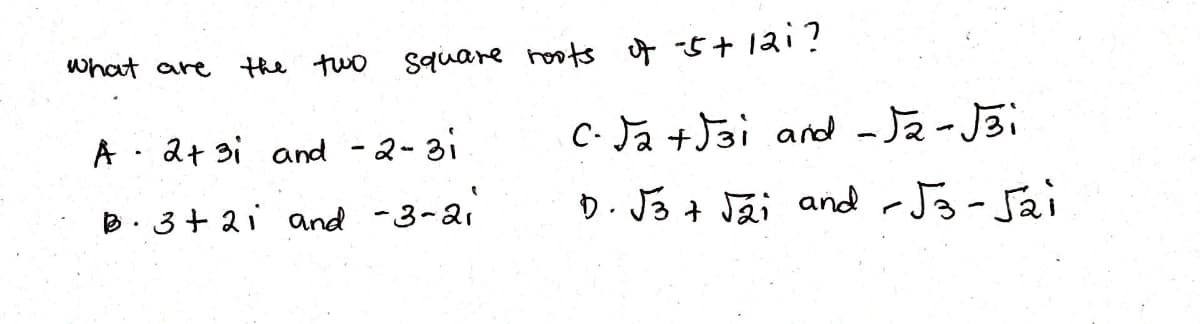 What are the two square roots of -5 + 12i?
A. 2+3i and -2-3i
C. √2 + √3i and -√2-√3i
B. 3+2i and -3-2i
D. √3 + √2i and -√3-√2i